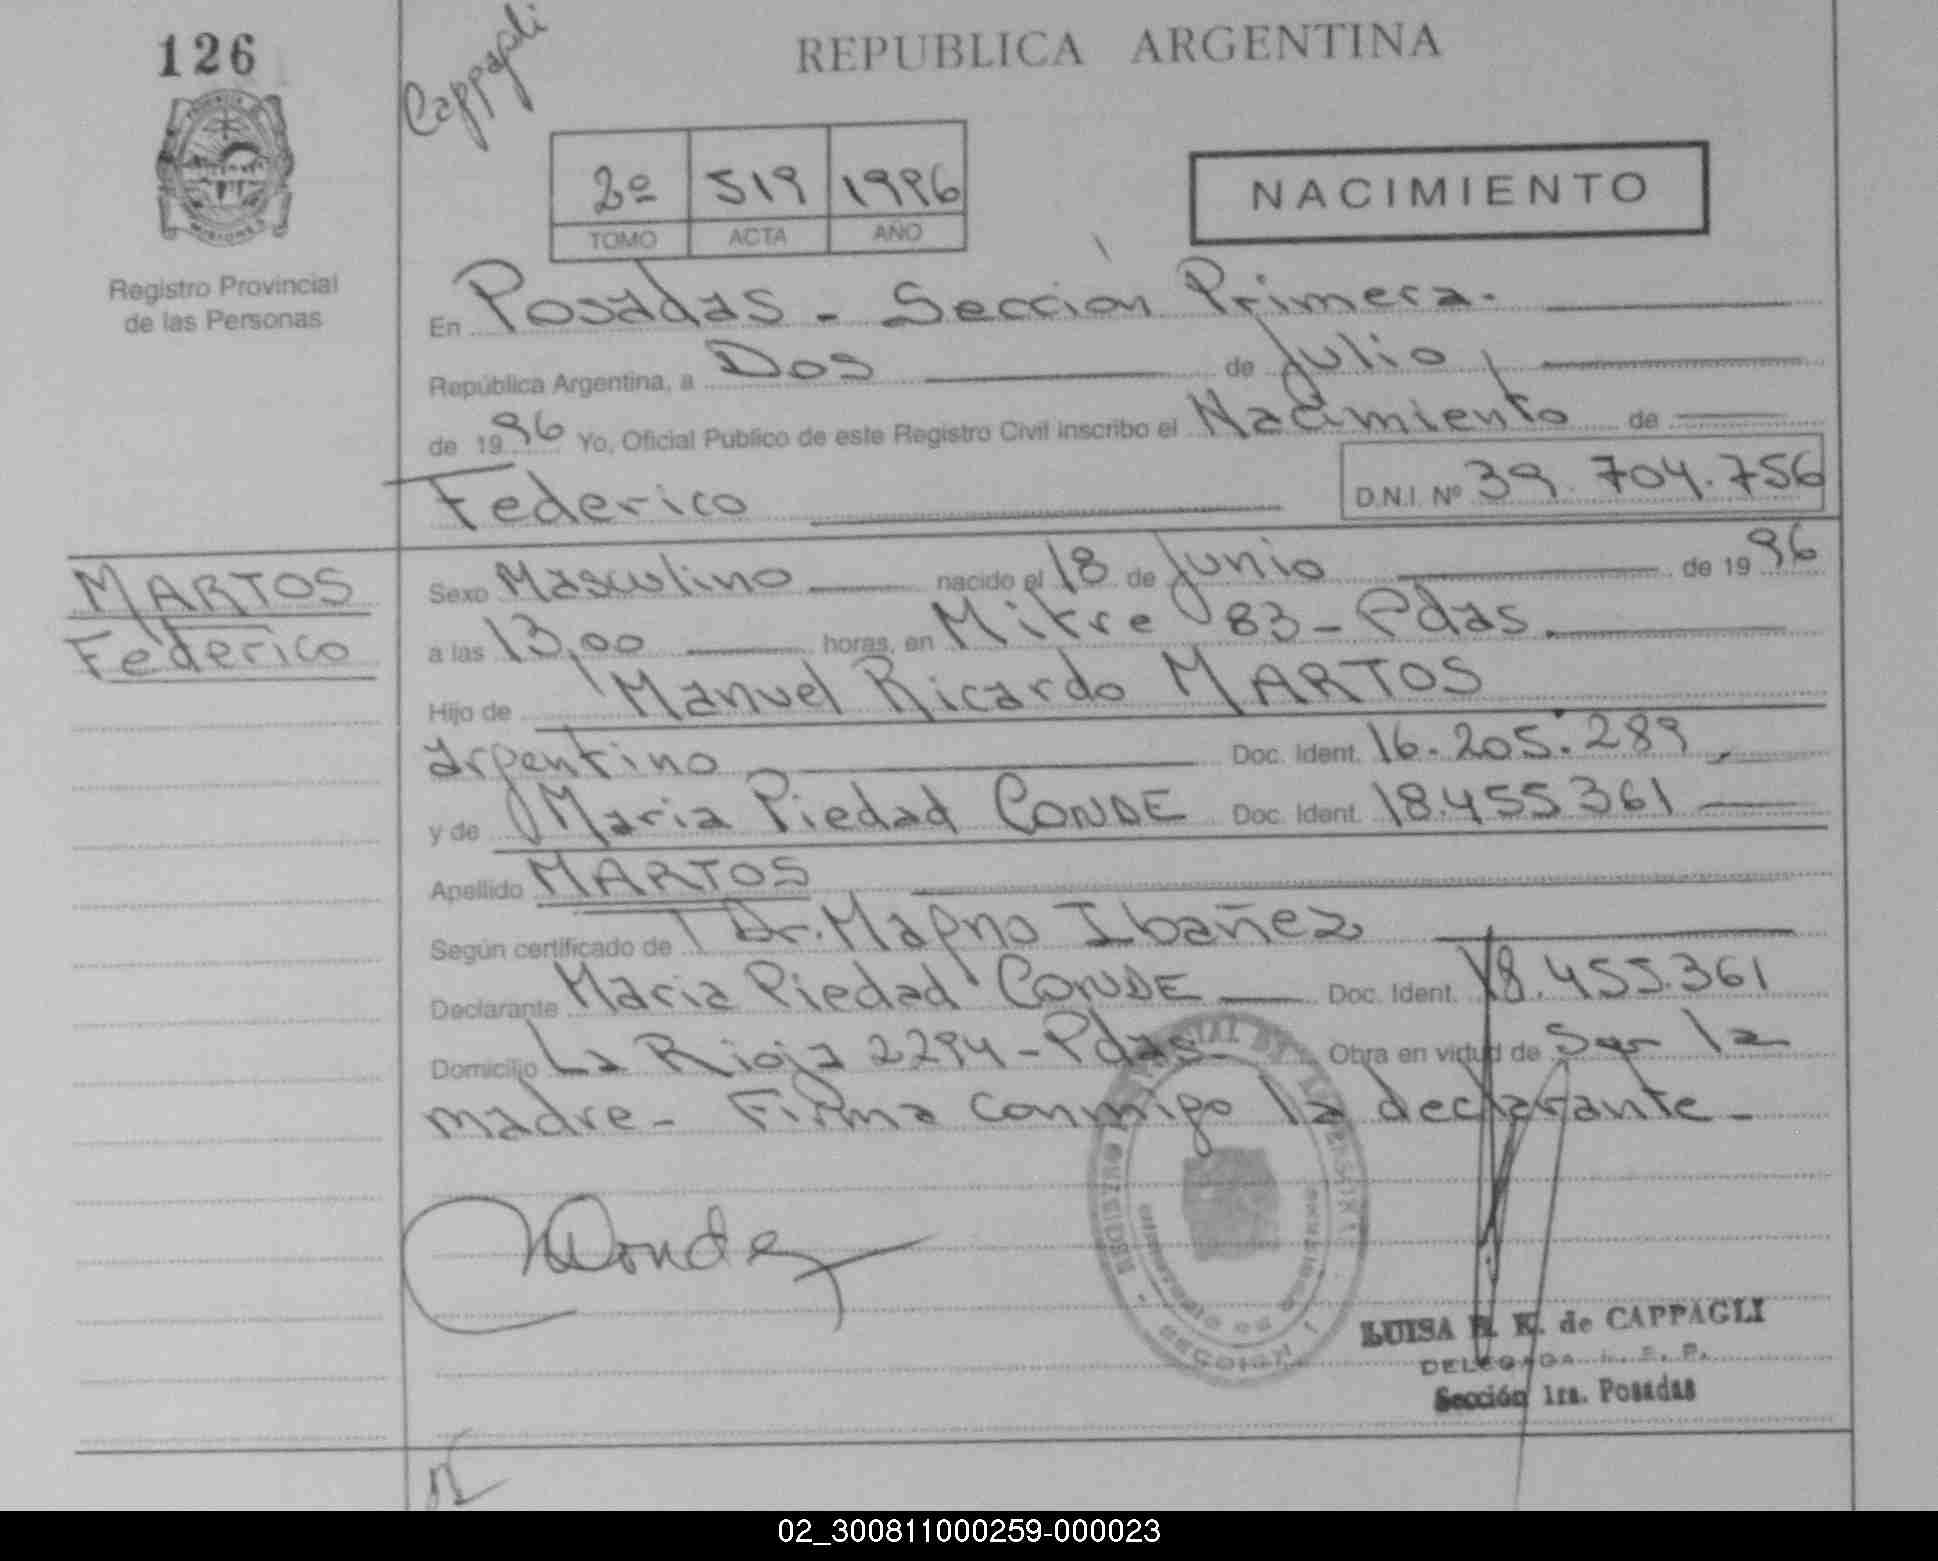 126
Cappagli
REPUBLICA ARGENTINA
2º 519 1996
TOMO ACTA AÑO
NACIMIENTO
MISIONES
Registro Provincial
de las Personas
En Posadas - Sección Primera.
República Argentina, a Dos de Julio,
de 1996 Yo, Oficial Publico de este Registro Civil inscribo el Nacimiento de
Federico D.N.I. Nº 39.704.756
MARTOS
Federico
Sexo Masculino nacido el 18 de Junio de 1996
a las 13,00 horas, en Mitre 83 - Pdas.
Hijo de Manuel Ricardo MARTOS
argentino Doc. Ident. 16.205.289
y de Maria Piedad CONDE Doc. Ident. 18.455361
Apellido MARTOS
Según certificado de Dr. Magno Ibañez
Declarante Maria Piedad CONDE Doc. Ident. 18.455.361
Domicilio La Rioja 2294 - Pdas - Obra en virtud de ser la
madre - Firma conmigo la declarante -
Conde
LUISA K. de CAPPAGLI
DELEGADA
Sección 1ra. Posadas
02_300811000259-000023